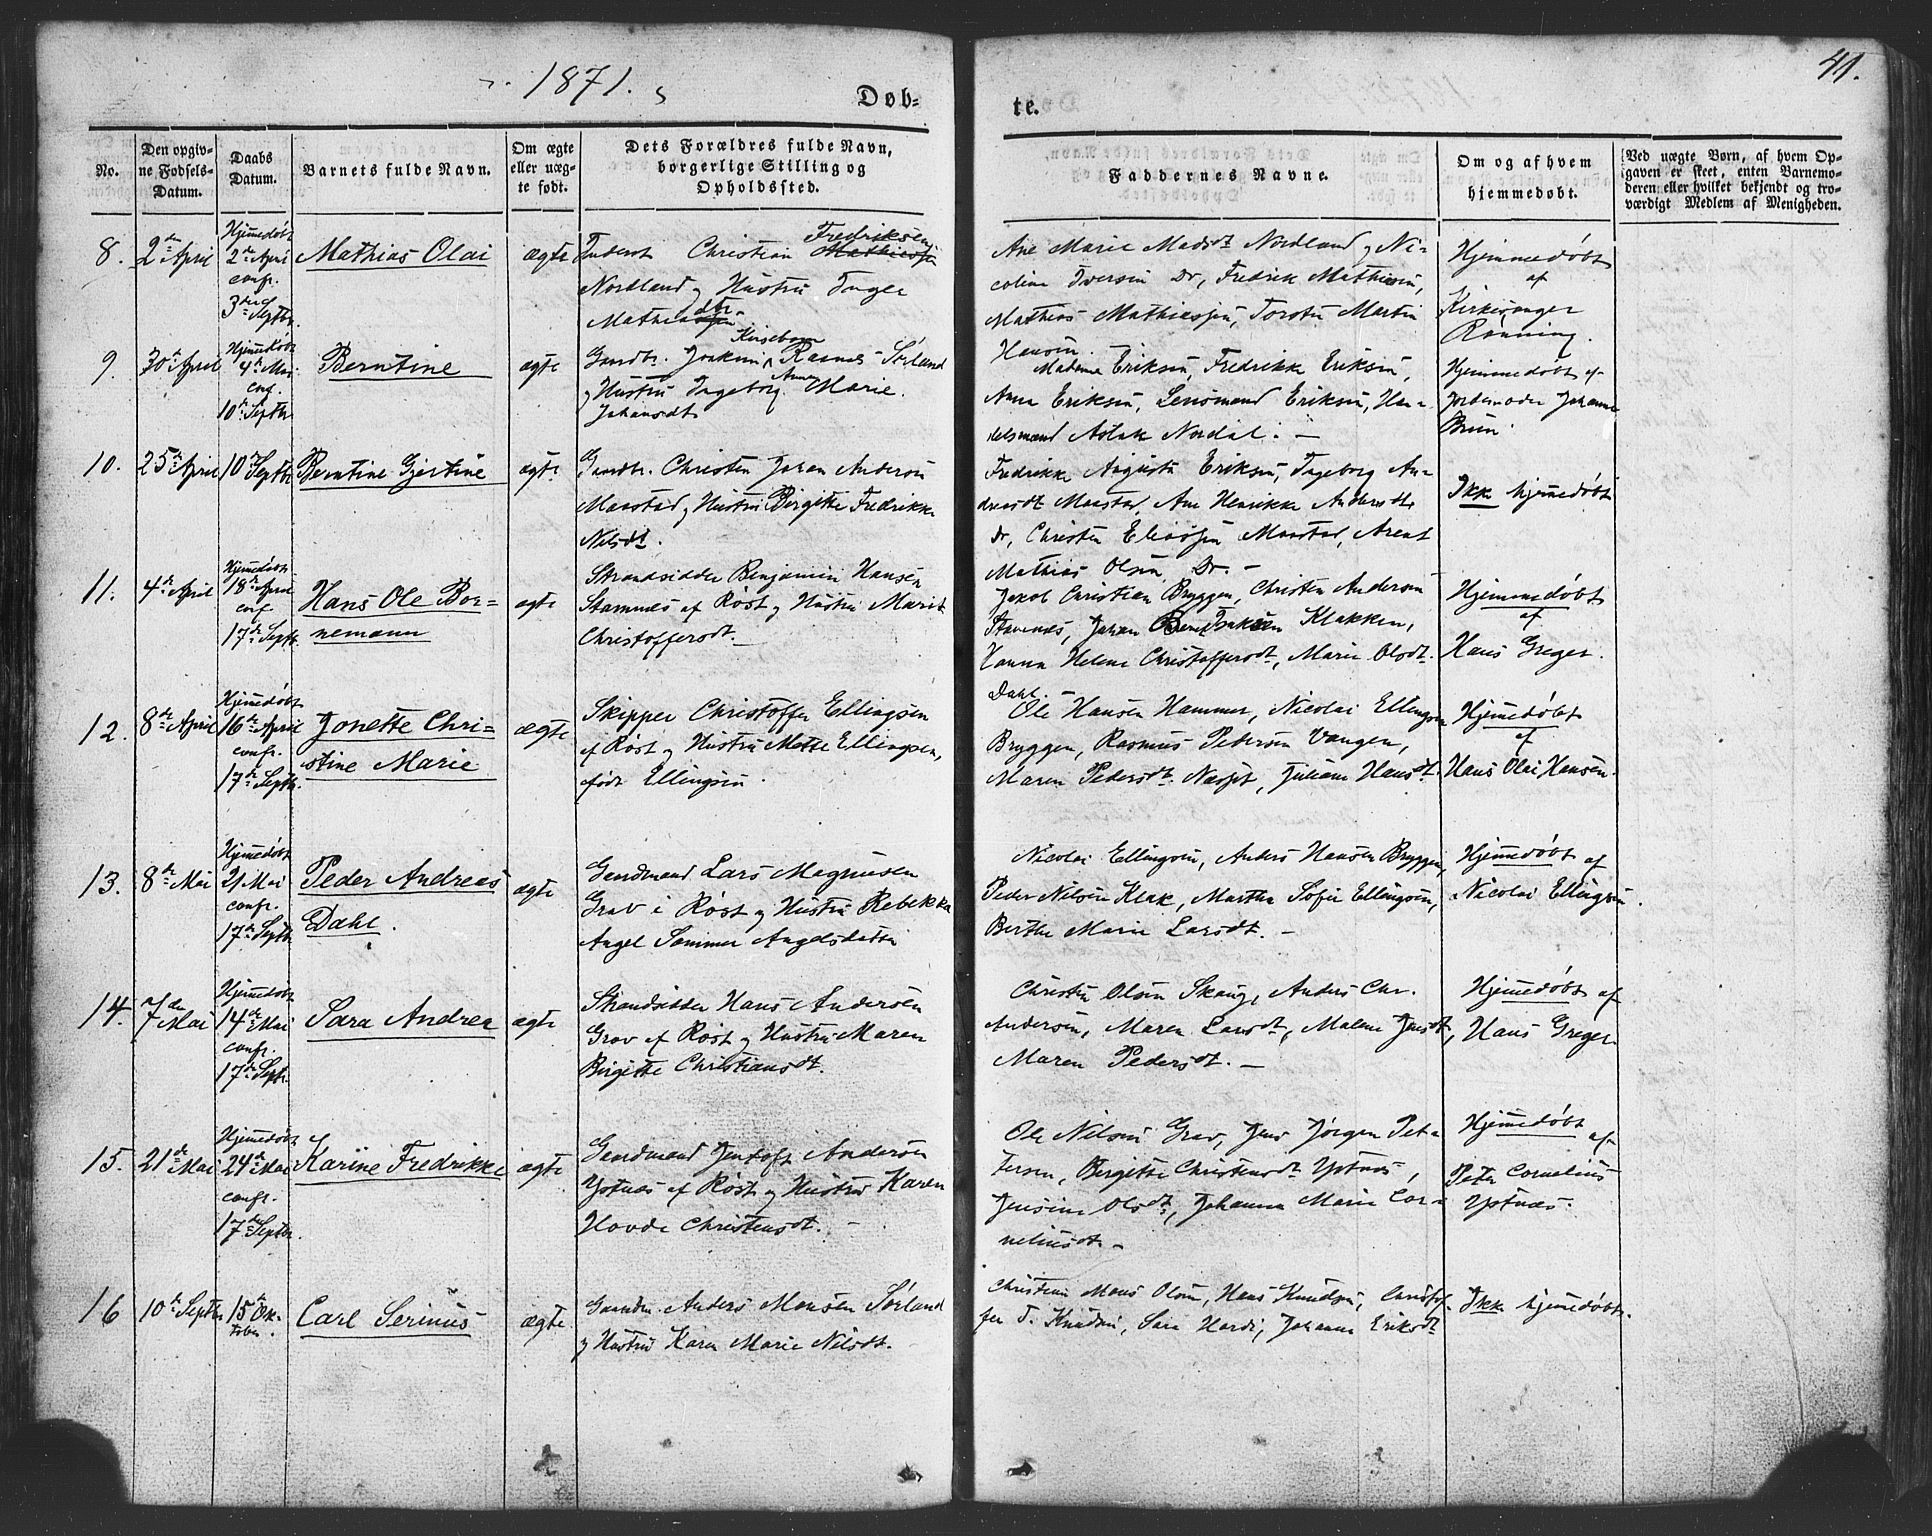 1871.
41.
Døb=
te.
No.
Den opgiv-
ne Fødsels-
Datum.
Daabs
Datum.
Barnets fulde Navn.
Om ægte
eller uæg-
te født.
Dets Forældres fulde Navn,
borgerlige Stilling og
Opholdssted.
Faddernes Navne.
Om og af hvem
hjemmedøbt.
Ved uægte Børn, af hvem Op-
gaven er skeet, enten Barnemo-
deren eller hvilket bekjendt og tro-
værdigt Medlem af Menigheden.
8.
2de April
Hjemmedøbt
2de April
conf.
3die Septbr.
Mathias Olai
ægte
Christian Fredriksen
Nordland og Hustru Inger
Mathiasdtr.
Ane Marie Madsdt Nordland og Ni-
coline Iversen Do, Fredrik Mathisen,
Mathias Mathiassen, Torsten Martin
Hansen.
Hjemmedøbt
af
Kirkesanger
Rønning.
9.
30te April
Hjemmedøbt
4de Mai
conf.
10de Septbr.
Berntine
ægte
Gaardbr. Joakim Rasmus Sørland
og Hustru Ingeborg Anna Marie
Johansdt
Madame Eriksen, Fredrikke Eriksen,
Anna Eriksen, Lensmand Eriksen, Han-
delsmand Aslak Nordal. —
Hjemmedøbt af
Jordemoder Johanna
Bruun.
10.
25de April
10de Septbr
Berntine Gjertine
ægte
Gaardbr. Christen Johan Andersen
Maastad og Hustru Birgitte Fredrikke
Nilsdt.
Fredrikke Augusta Eriksen, Ingeborg An-
dreasdt Maastad, Ane Henrikke Andersdt
Do, Christen Eliassen Maastad, Arent
Mathias Olsen Do. —
Ikke hjemmedøbt
11.
4de April
Hjemmedøbt
18de April
conf.
17de Septbr.
Hans Ole Bor=
nemann
ægte
Strandsidder Benjamin Hansen
Stamnes af Røst og Hustru Marit
Christoffersdt.
Jakob Christian Bryggen, Christen Andersen
Stavenæs, Johan Klakken,
Hanna Helene Christoffersdt, Marie Olsdt.
Dahl. —
Hjemmedøbt
af
Hans Greger.
12.
8de April
Hjemmedøbt
16de April
conf.
17de Septbr.
Jonette Chri=
stine Marie
ægte
Skipper Christoffer Ellingsen
af Røst og Hustru Mette Ellingsen,
født Ellingsen.
Ole Hansen Hammer, Nicolai Ellingsen
Bryggen, Rasmus Pedersen Vangen,
Maren Pedersdt. Næsset, Juliane Hansdt.
Hjemmedøbt
af
Hans Olai Hansen.
13.
8de Mai
Hjemmedøbt
21 Mai
conf.
17de Septbr
Peder Andreas
Dahl.
ægte
Gaardmand Lars Magnusen
Grav i Røst og Hustru Rebekka
Angel Sommer Angelsdatter
Nicolai Ellingsen, Anders Hansen Bryggen,
Peder Nilsen Klak, Martha Sofie Ellingsen,
Berthe Marie Larsdt. —
Hjemmedøbt af
Nicolai Ellingsen.
14.
7de Mai
Hjemmedøbt
14de Mai
conf.
17de Septbr.
Sara Andrea
ægte
Strandsidder Hans Andersen
Grav af Røst og Hustru Maren
Birgitte Christiansdt.
Christen Olsen Skaug, Anders Chr.
Andersen, Maren Larsdt, Malene Jensdt,
Maren Pedersdt. —
Hjemmedøbt af
Hans Greger
15.
21de Mai
Hjemmedøbt
24de Mai
conf.
17de Septbr.
Karine Fredrikke
ægte
Gaardmand Jentoft Andersen
Ystnæs af Røst og Hustru Karen
Hovde Christensdt. —
Ole Nilsen Grav, Jens Jørgen Pet-
tersen, Birgitte Christensdt Ystnæs,
Jensine Olsdt, Johanna Marie Cor-
neliusdt. —
Hjemmedøbt
af
Peter Cornelius
Ystnæs.
16
10de Septbr
15de Ok-
tober.
Carl Serinius
ægte
Gaardm. Anders Monsen Sørland
og Hustru Karen Marie Nilsdt.
Christian Mons Olsen, Hans Knudsen, Christof-
fer T. Knudsen, Sara Hardi, Johanna Eriksdt
Ikke hjemmedøbt.